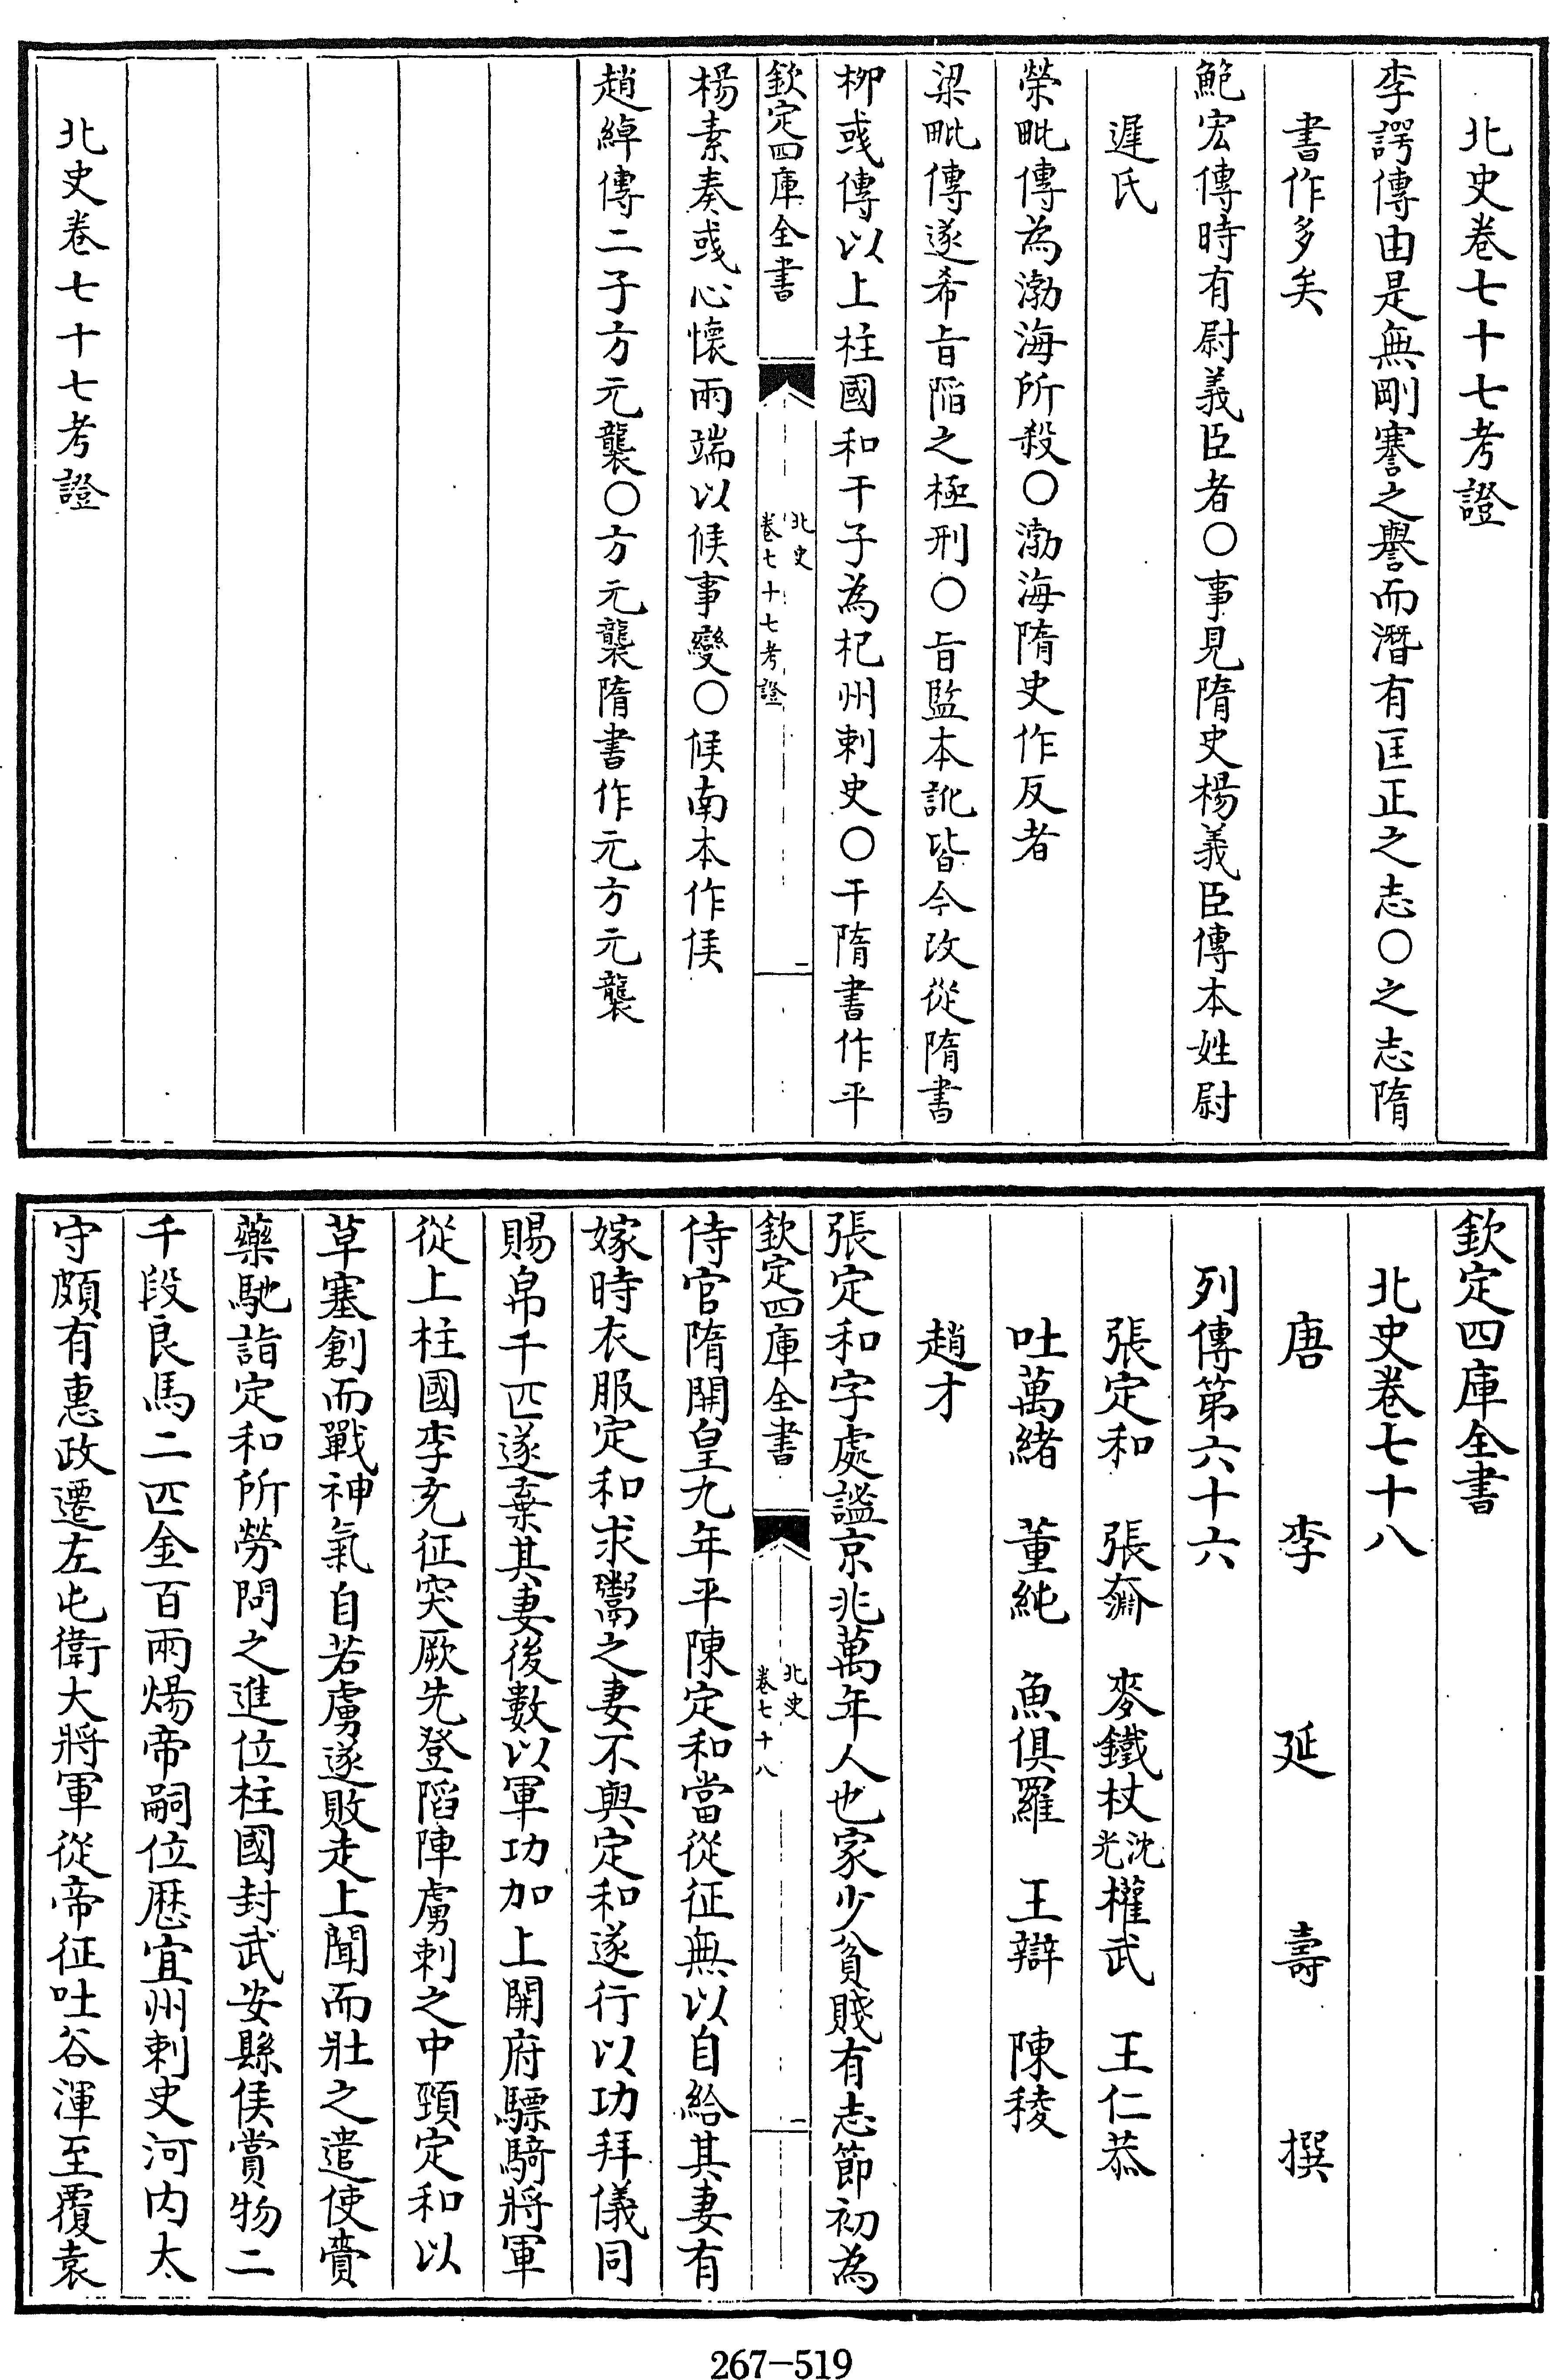 北史卷七十七考證
李諤傳由是無剛謇之譽而潛有匡正之志○之志隋
書作多矣
鮑宏傳時有尉義臣者○事見隋史楊義臣傳本姓尉
遲氏
榮毗傳為渤海所殺○渤海隋史作反者
梁毗傳遂希旨陷之極刑○旨監本訛皆今改從隋書
柳彧傳以上柱國和干子為杞州刺史○干隋書作平
欽定四庫全書
北史
卷七十七考證
二
楊素奏彧心懷兩端以候事變○候南本作俟
趙綽傳二子方元襲○方元襲隋書作元方元襲
北史卷七十七考證
欽定四庫全書
北史卷七十八
唐 李 延 壽 撰
列傳第六十六
張定和 張奫 麥鐵杖沈光權武 王仁恭
吐萬緒 董純 魚俱羅 王辯 陳稜
趙才
張定和字處謐京兆萬年人也家少貧賤有志節初為
欽定四庫全書
北史
卷七十八
一
侍官隋開皇九年平陳定和當從征無以自給其妻有
嫁時衣服定和求鬻之妻不與定和遂行以功拜儀同
賜帛千匹遂棄其妻後數以軍功加上開府驃騎將軍
從上柱國李充征突厥先登陷陣虜刺之中頸定和以
草塞創而戰神氣自若虜遂敗走上聞而壯之遣使賫
藥馳詣定和所勞問之進位柱國封武安縣侯賞物二
千段良馬二匹金百兩煬帝嗣位歷宜州刺史河内太
守頗有惠政遷左屯衛大將軍從帝征吐谷渾至覆袁
267-519